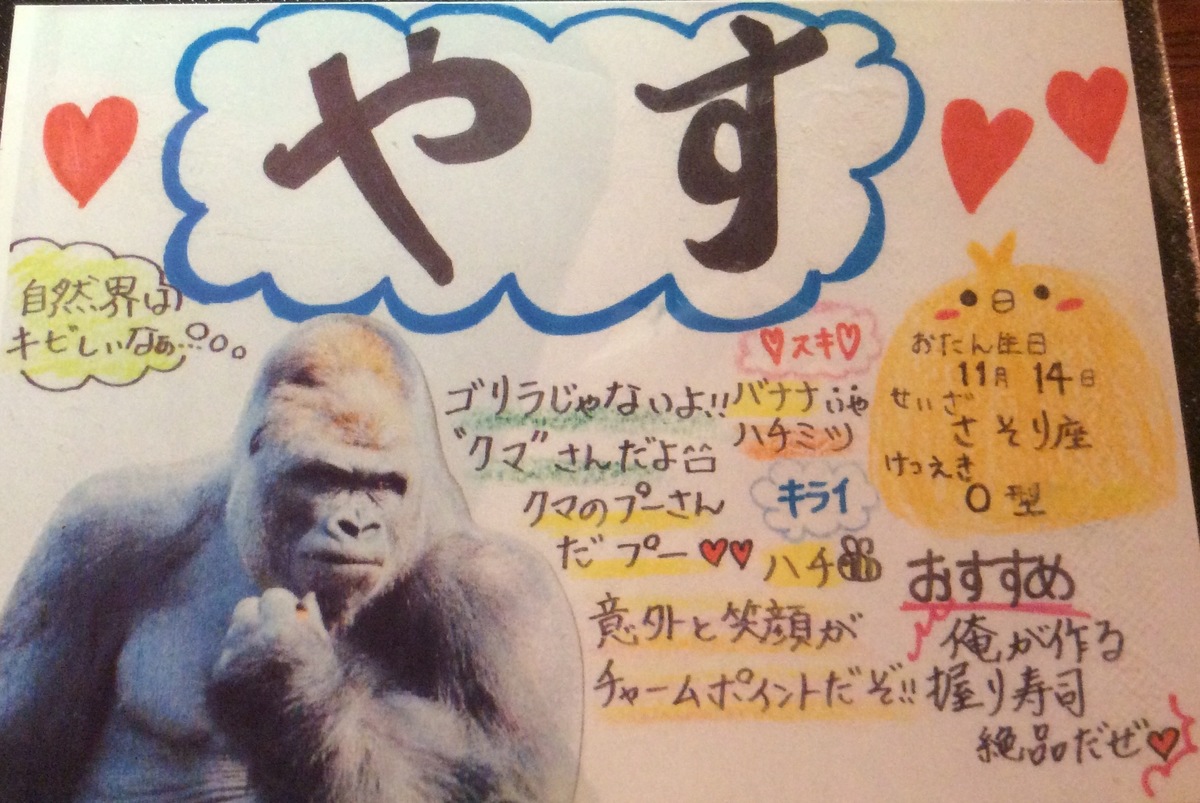 やす
自然界は
キビしいなぁ…
ゴリラじゃないよ!!
"クマ"さんだよ
クマのプーさん
だプー
意外と笑顔が
チャームポイントだぞ!!
スキ
バナナ
ハチミツ
キライ
ハチ
おたん生日
11月14日
せいざ
さそり座
けつえき
O型
おすすめ
俺が作る
握り寿司
絶品だぜ